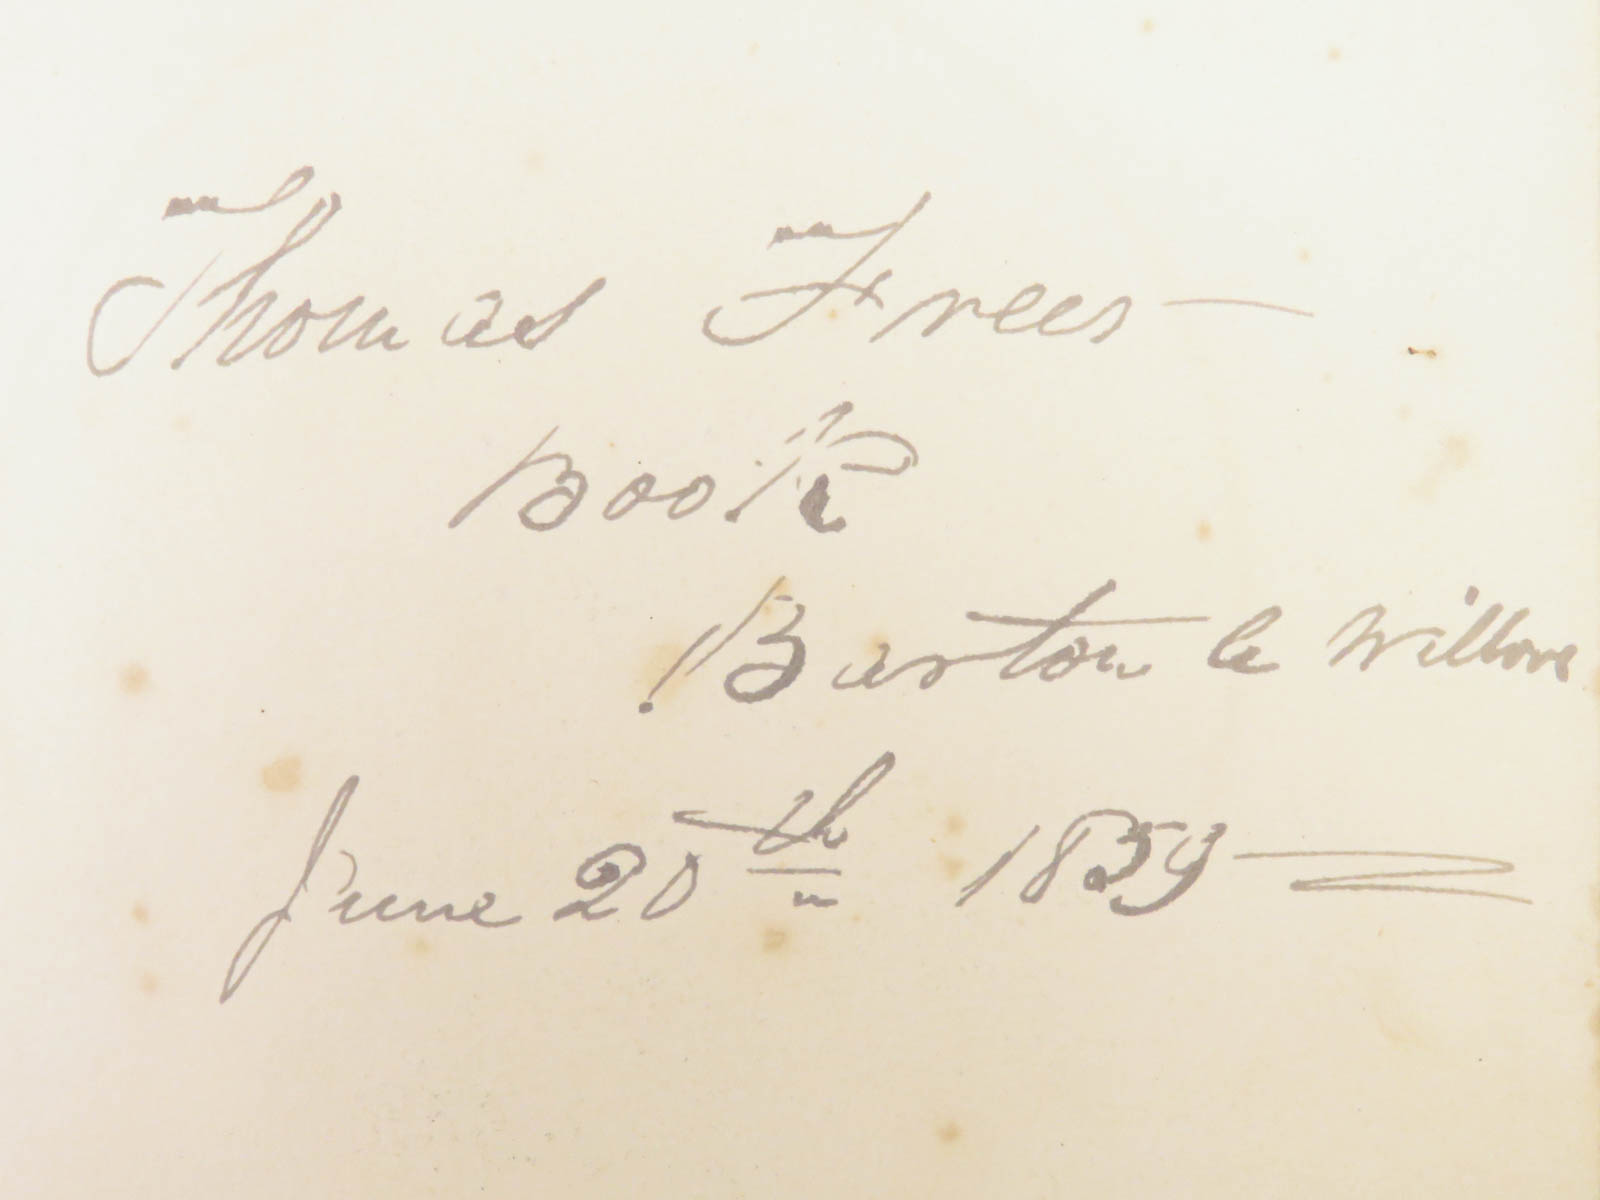 Thomas Frees
Book
Barton le Willows
June 20th 1859